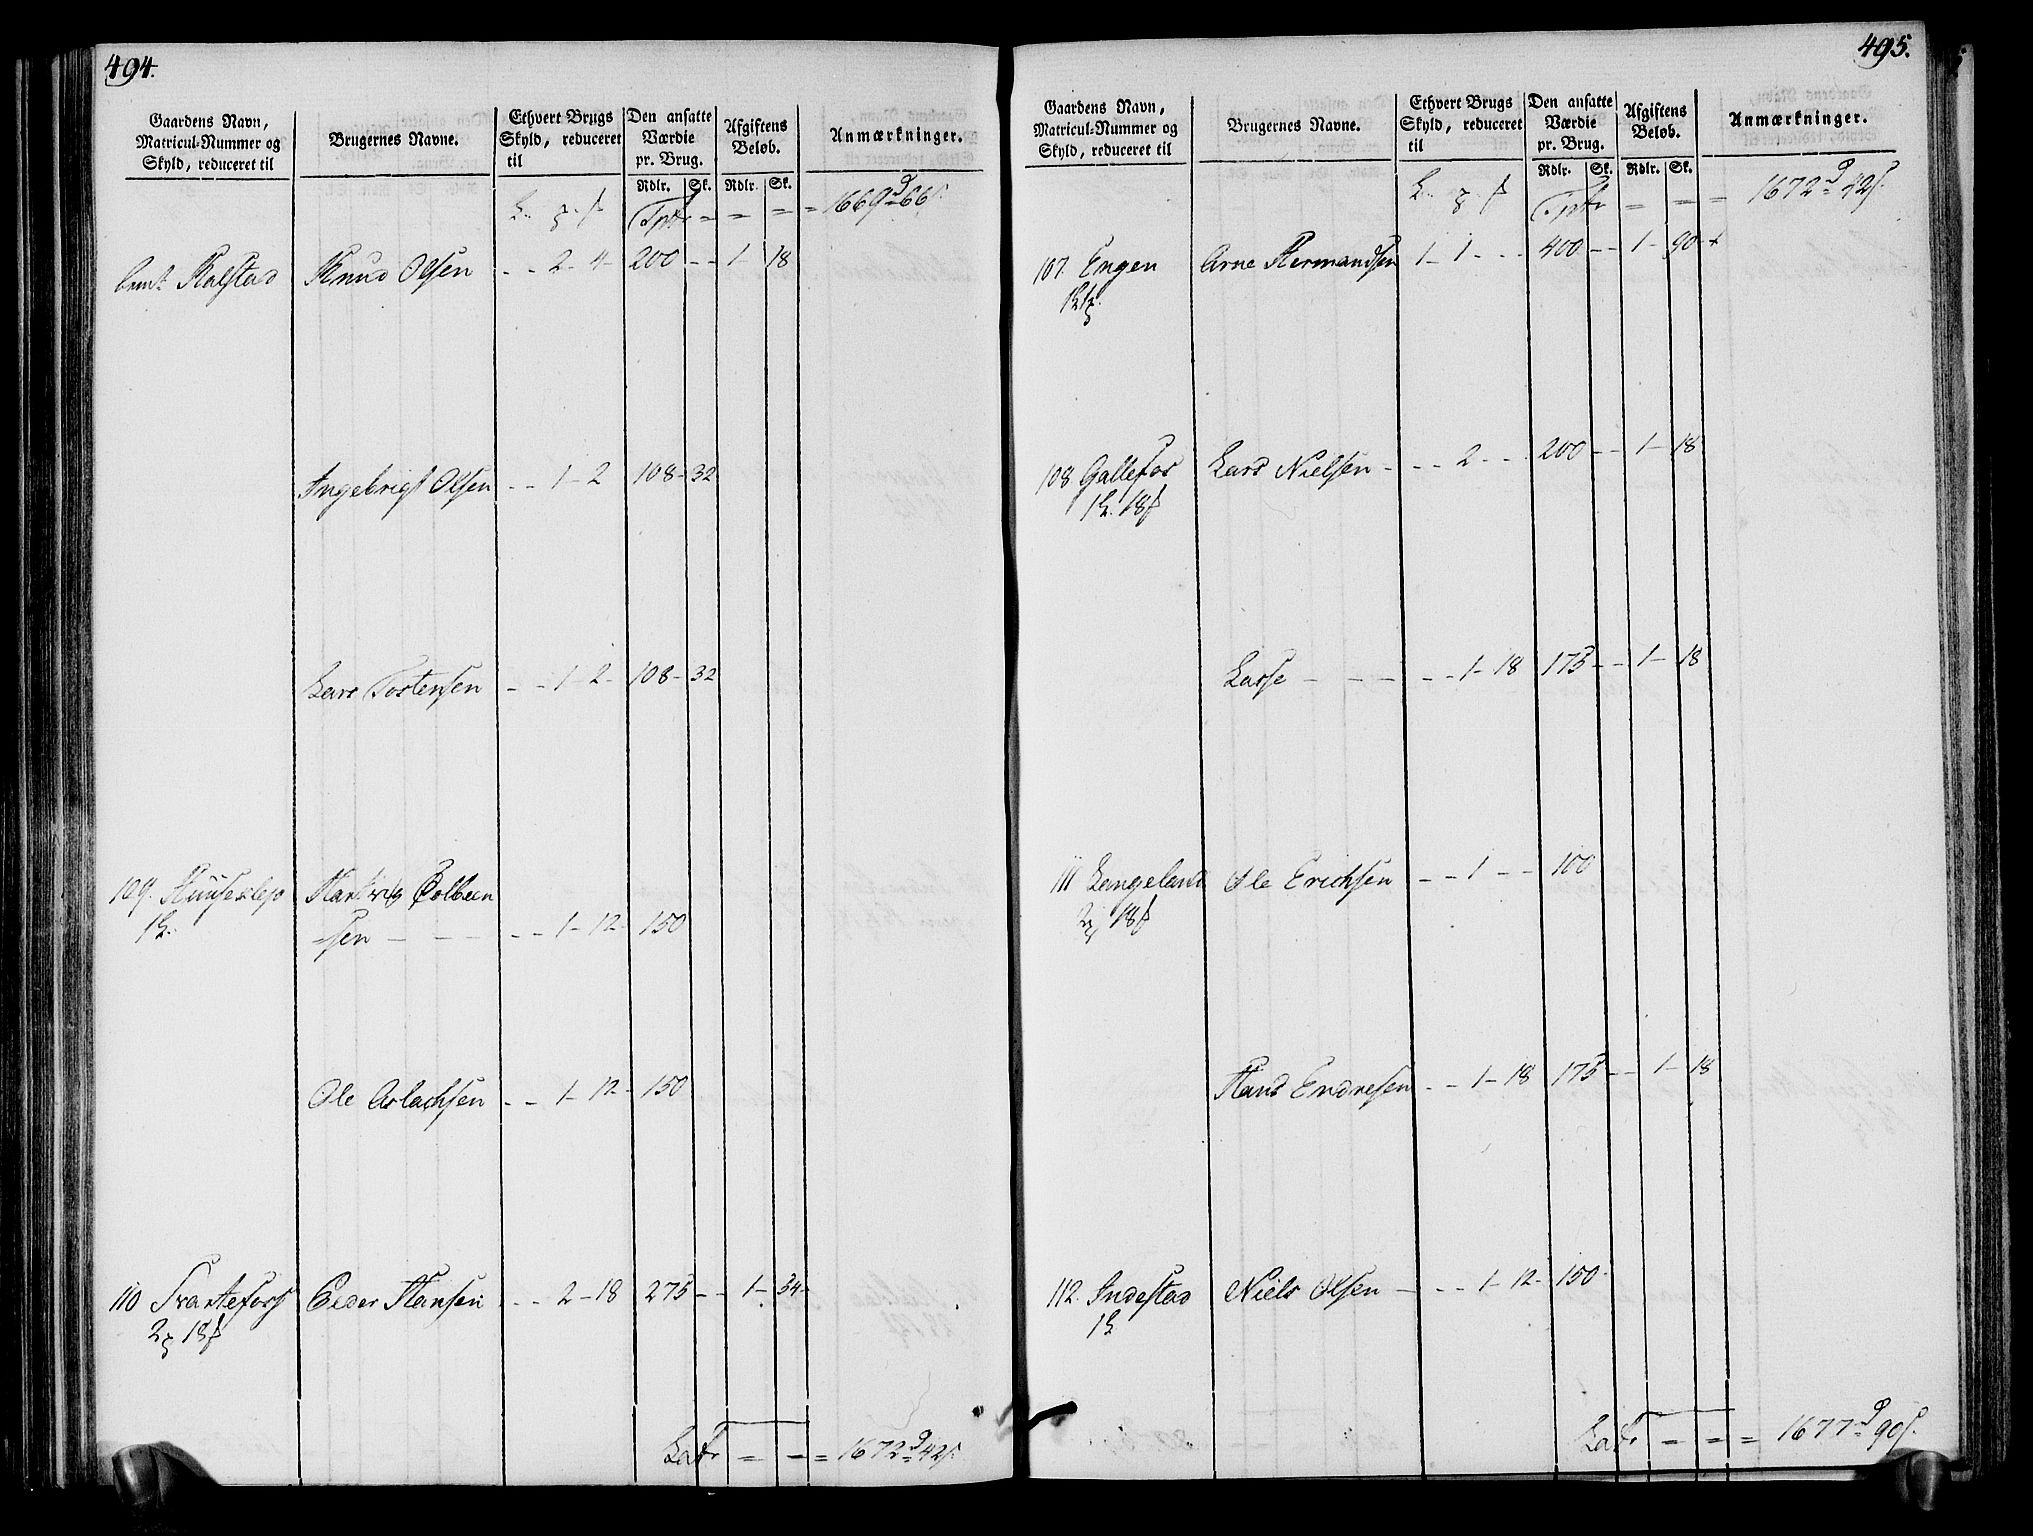 494.
Gaardens Navn, Matricul-Nummer og Skyld, reduceret til
Brugernes Navne.
Ethvert Brugs Skyld, reduceret til
Den ansatte Værdie pr. Brug.
Afgiftens Beløb.
Anmærkninger.
Rdlr. Sk. Rdlr. Sk.
Tptr = = = = 1669 d 66 s
Kalstad Knud Olsen - - 2 - 4 - 200 - - 1 - 18
Ingebrigt Olsen - - 1 - 2 108 - 32
Lars Tostensen - - 1 - 2 - 108 - 32
109.
sen - - - - - 1 - 12 - 150
Ole Aslachsen - - 1 - 12 - 150
110 Peder Hansen - - 2 - 18 275 - - 1 - 54 -
Latr = = = 1672 d 42 s
495.
Gaardens Navn, Matricul-Nummer og Skyld, reduceret til
Brugernes Navne.
Ethvert Brugs Skyld, reduceret til
Den ansatte Værdie pr. Brug.
Afgiftens Beløb.
Anmærkninger.
Rdlr. Sk. Rdlr. Sk.
Tptr = = = 1672 d 42 s
107. Engen Arne Hermandsen 1 - 1 - - - 400 - - 1 - 90
108 Gallefos Lars Nielsen - - - 2 - - 200 - - 1 - 18
Lasse - - - - - 1 - 18 175 - - 1 - 18
111 Langeland Ole Erichsen - - 1 - - 100
Hans Endresen - - 1 - 18 175 - - 1 - 18
112. Indestad Niels Olsen - - - 1 - 12 - 150
Latr = = = 1677 d 90 s